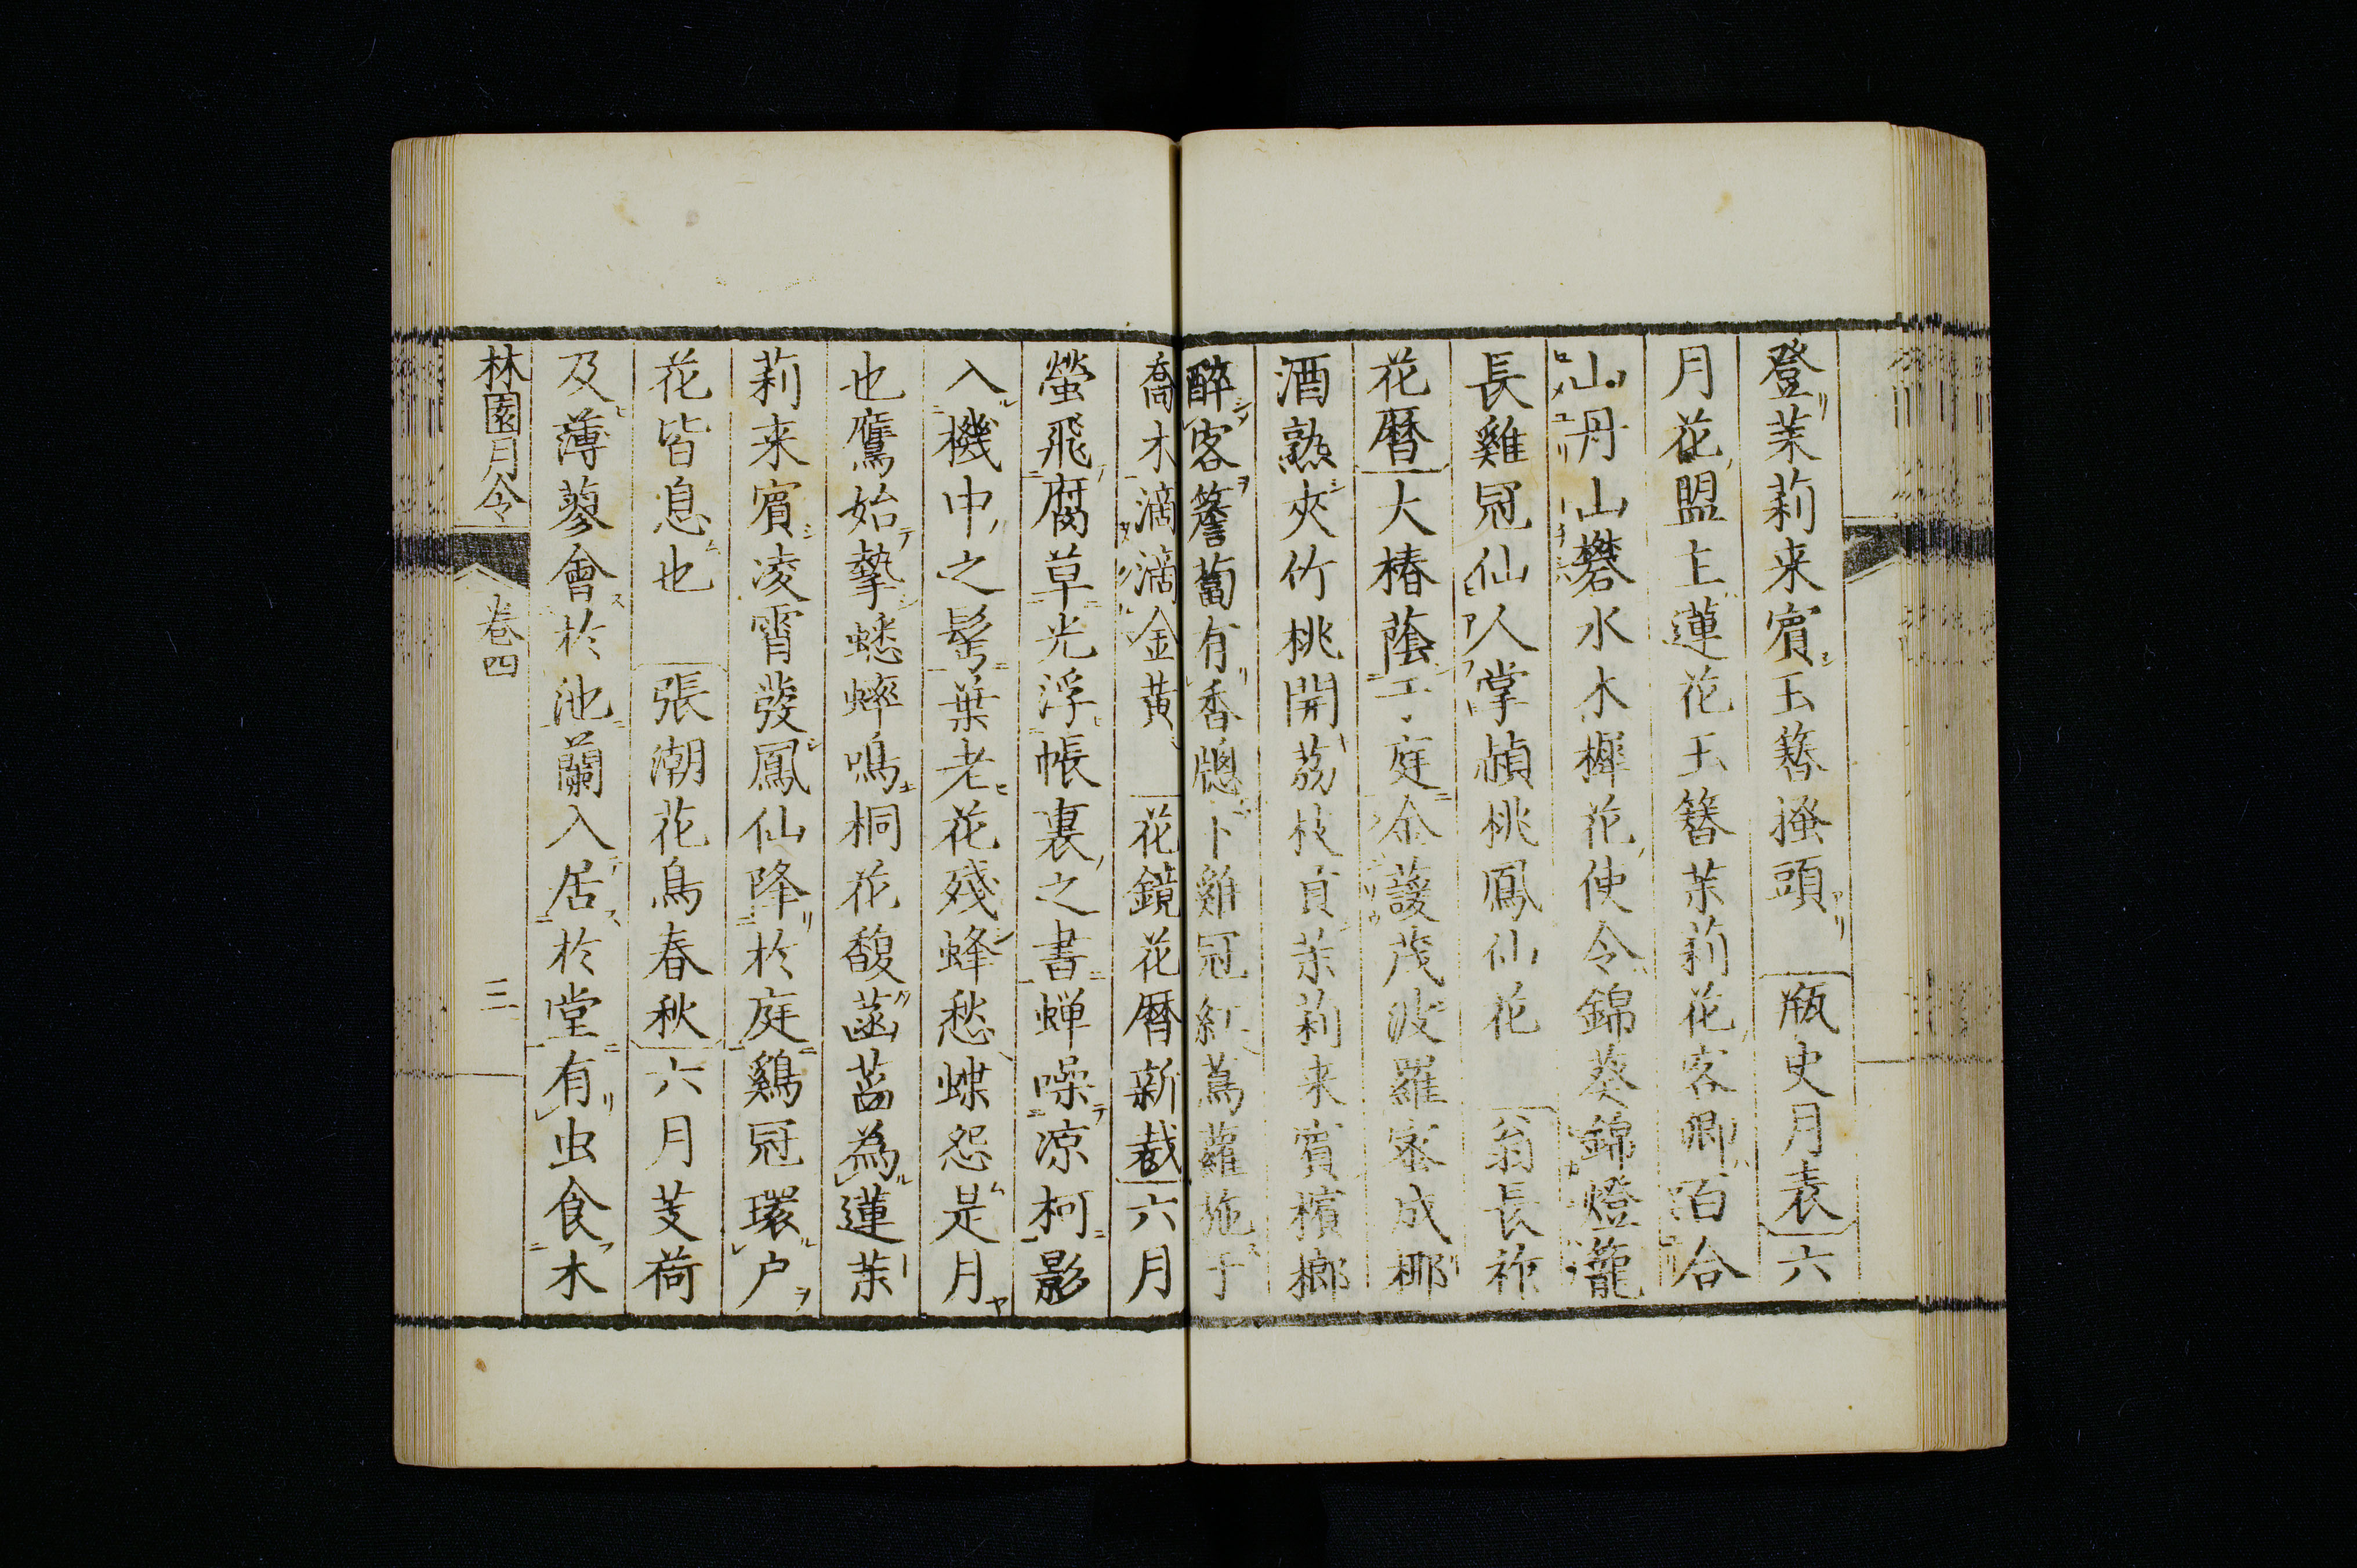 登茉莉来賓玉簪搔頭 瓶史月表六
月花盟主蓮花玉簪茉莉花客卿百合
山丹山礬水木樨花使令錦葵錦燈籠
長雞冠仙人掌楨桃鳳仙花 翁長祚
花暦大椿蔭于庭金䕶茂波羅蜜成椰
酒熟夾竹桃開荔枝貢茉莉来賓檳榔
醉客簷蔔有香牕卜雞冠紅蔦蘿施于
喬木滴滴金黃 花鏡花暦新裁六月
螢飛腐草光浮帳裏之書蝉噪凉柯影
入機中之髩葉老花殘蜂愁蝶怨是月
也鷹始摯蟋蟀鳴桐花馥菡萏為蓮茉
莉来賓凌霄發鳳仙降於庭鷄冠環户
花皆息也 張潮花鳥春秋六月芰荷
及薄蓼會於池蘭入居於堂有虫食木
林園月令 卷四 三